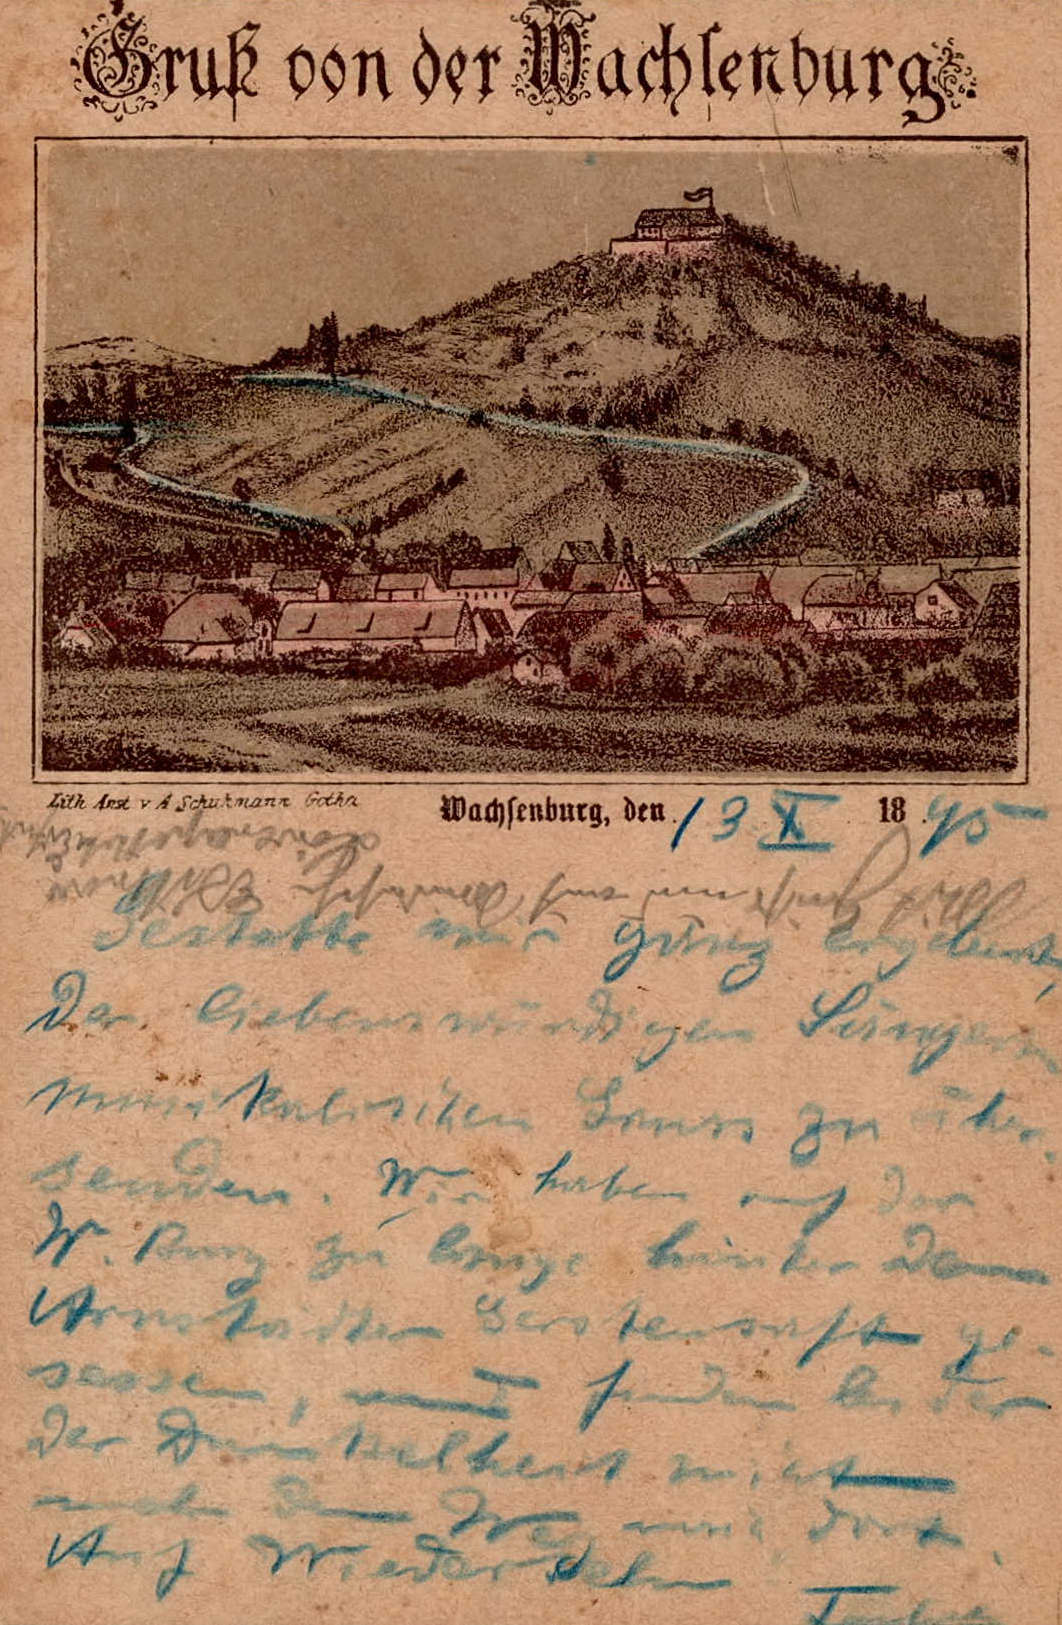 Gruß von der Wachsenburg.
Lith Anst v A Schuhmann Gotha
Wachsenburg, den 13. X 1895
Gestatte mir ganz ergebenst,
Der liebenswürdigen Sängerin
musikalischen Gruss zu über-
senden. Wir haben auf der
W. Burg zu lange hinter dem
Arnstädter Gerstensaft ge-
sessen, und finden bei der
der Dunkelheit nicht
mehr den Weg nach dort.
Auf Wiedersehn